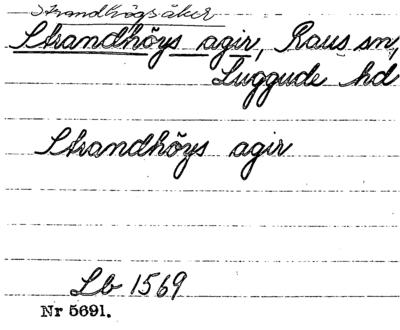 Strandhögsåker
Strandhöys agir, Raus sn,
Luggude hd
Strandhöys agir
Lb 1569
Nr 5691.